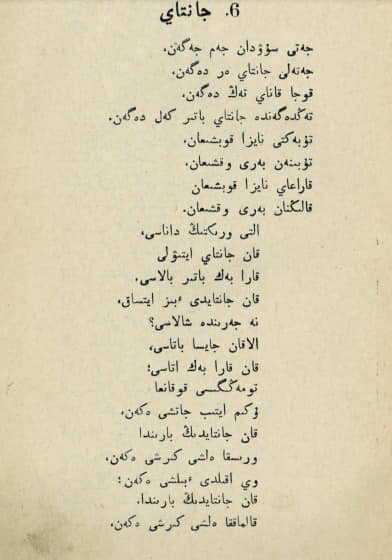 6. جانتاي
جەتى سۋۋدان جەم جەگەن،
جەتەلى جانتاي ەر دەگەن،
قوجا قاناي تەڭ دەگەن،
تەڭدەگەندە جانتاي باتىر كەل دەگەن.
تۋبەكتى نايزا قوبشىعان،
تۋبىنەن بەرى وقشىعان.
قاراعاي نايزا قوبشىعان
قالىڭنان بەرى وقشىعان.
التى ورىكتىڭ داناسى،
قان جانتاي ايتىۋلى
قارا بەك باتىر بالاسى.
قان جانتايدى ءبىز ايتساق،
نە جەرىندە شالاسى؟
الاقان جايسا باتاسى،
قان قارا بەك اتاسى؛
تومەڭگىسى قوقانعا
ۇكىم ايتىپ جاتشى ەكەن،
قان جانتايدىڭ بارىندا
ورىسقا ەلشى كىرشى ەكەن،
وي اقىلدى ءبىلشى ەكەن؛
قان جانتايدىڭ بارىندا،
قالماققا ەلشى كىرشى ەكەن.